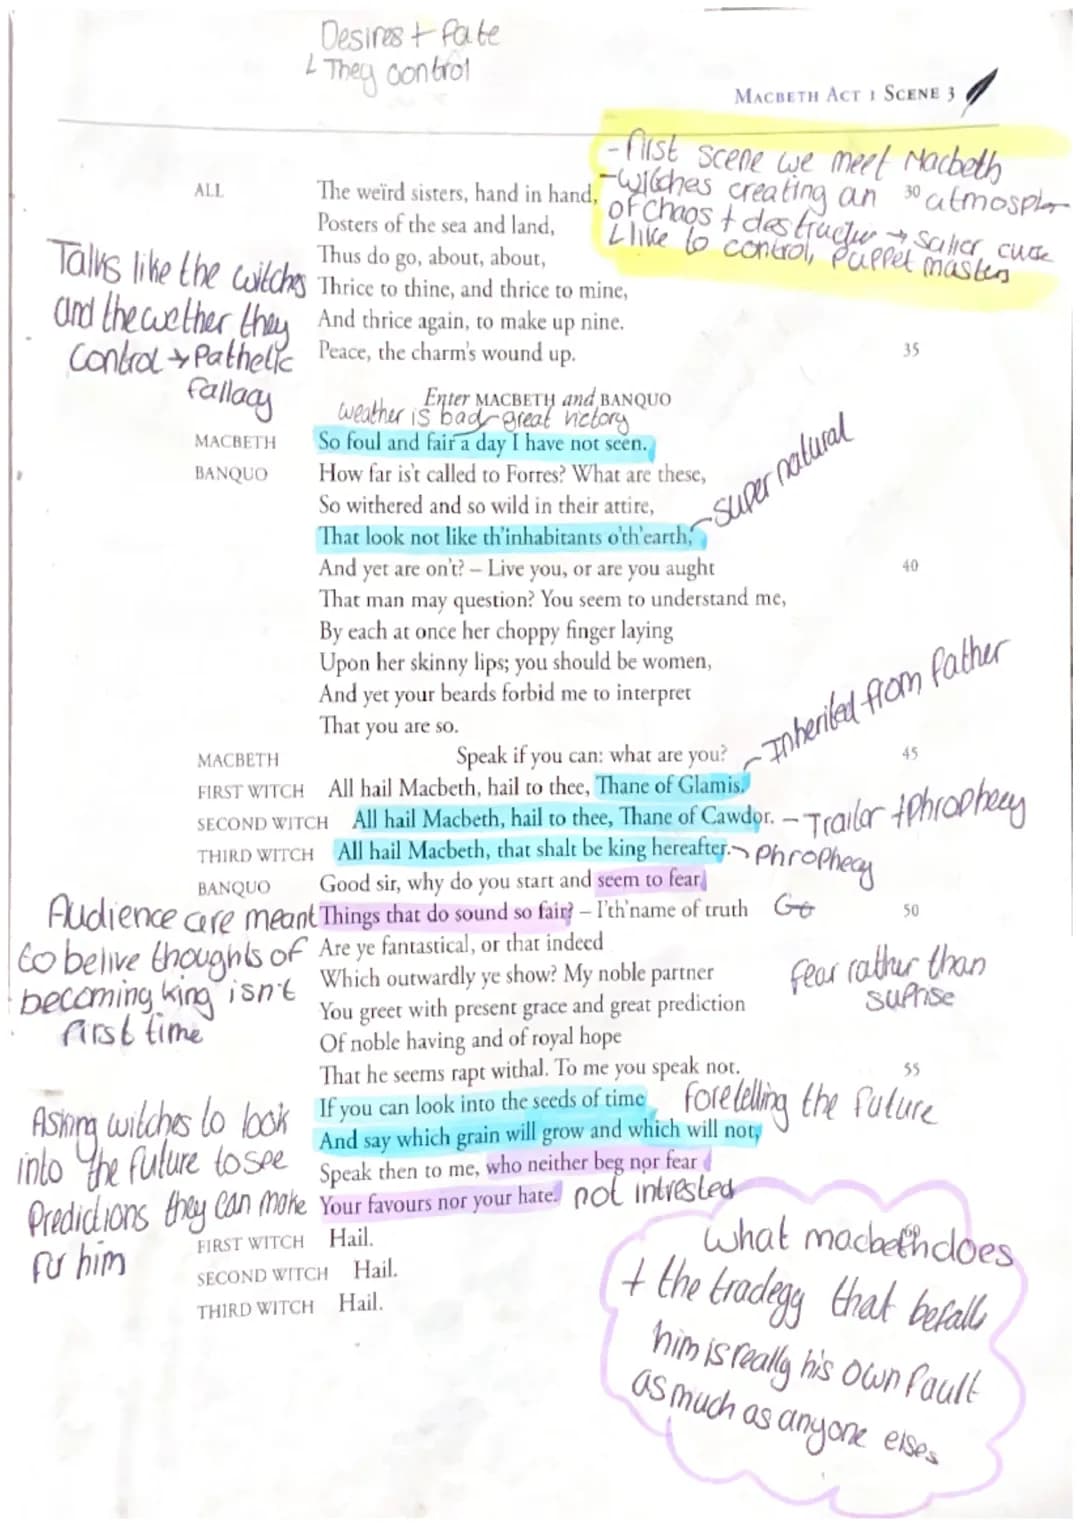 Desires + fate
↳ They control
MACBETH ACT 1 SCENE 3
- first scene we meet Macbeth
- witches creating an atmospher
of chaos + destructur → sailor curse
↳ like to control, puppet masters
ALL The weïrd sisters, hand in hand, 30
Posters of the sea and land,
Thus do go, about, about,
Thrice to thine, and thrice to mine,
And thrice again, to make up nine.
Peace, the charm's wound up. 35
Talks like the witches
and the wether they
control → Pathetic
fallacy
Enter MACBETH and BANQUO
weather is bad great victory
MACBETH So foul and fair a day I have not seen.
BANQUO How far is't called to Forres? What are these,
So withered and so wild in their attire,
That look not like th'inhabitants o'th'earth,
super natural
And yet are on't? – Live you, or are you aught 40
That man may question? You seem to understand me,
By each at once her choppy finger laying
Upon her skinny lips; you should be women,
And yet your beards forbid me to interpret
That you are so.
MACBETH Speak if you can: what are you? 45
FIRST WITCH All hail Macbeth, hail to thee, Thane of Glamis.
- Inherited from father
SECOND WITCH All hail Macbeth, hail to thee, Thane of Cawdor.
- Traitor + Phrophecy
THIRD WITCH All hail Macbeth, that shalt be king hereafter.
Phrophecy
BANQUO Good sir, why do you start and seem to fear
Things that do sound so fair? – I'th'name of truth 50
Are ye fantastical, or that indeed
Which outwardly ye show? My noble partner
You greet with present grace and great prediction
Of noble having and of royal hope
That he seems rapt withal. To me you speak not. 55
Audience are meant
to belive thoughts of
becoming king isn't
first time
fear rather than
suprise
If you can look into the seeds of time
And say which grain will grow and which will not,
Speak then to me, who neither beg nor fear
Your favours nor your hate.
foretelling the future
not intrested
Asking witches to look
into the future to see
Predictions they can make
for him
FIRST WITCH Hail.
SECOND WITCH Hail.
THIRD WITCH Hail.
60
what macbeth does
+ the tradegy that befalls
him is really his own fault
as much as anyone elses